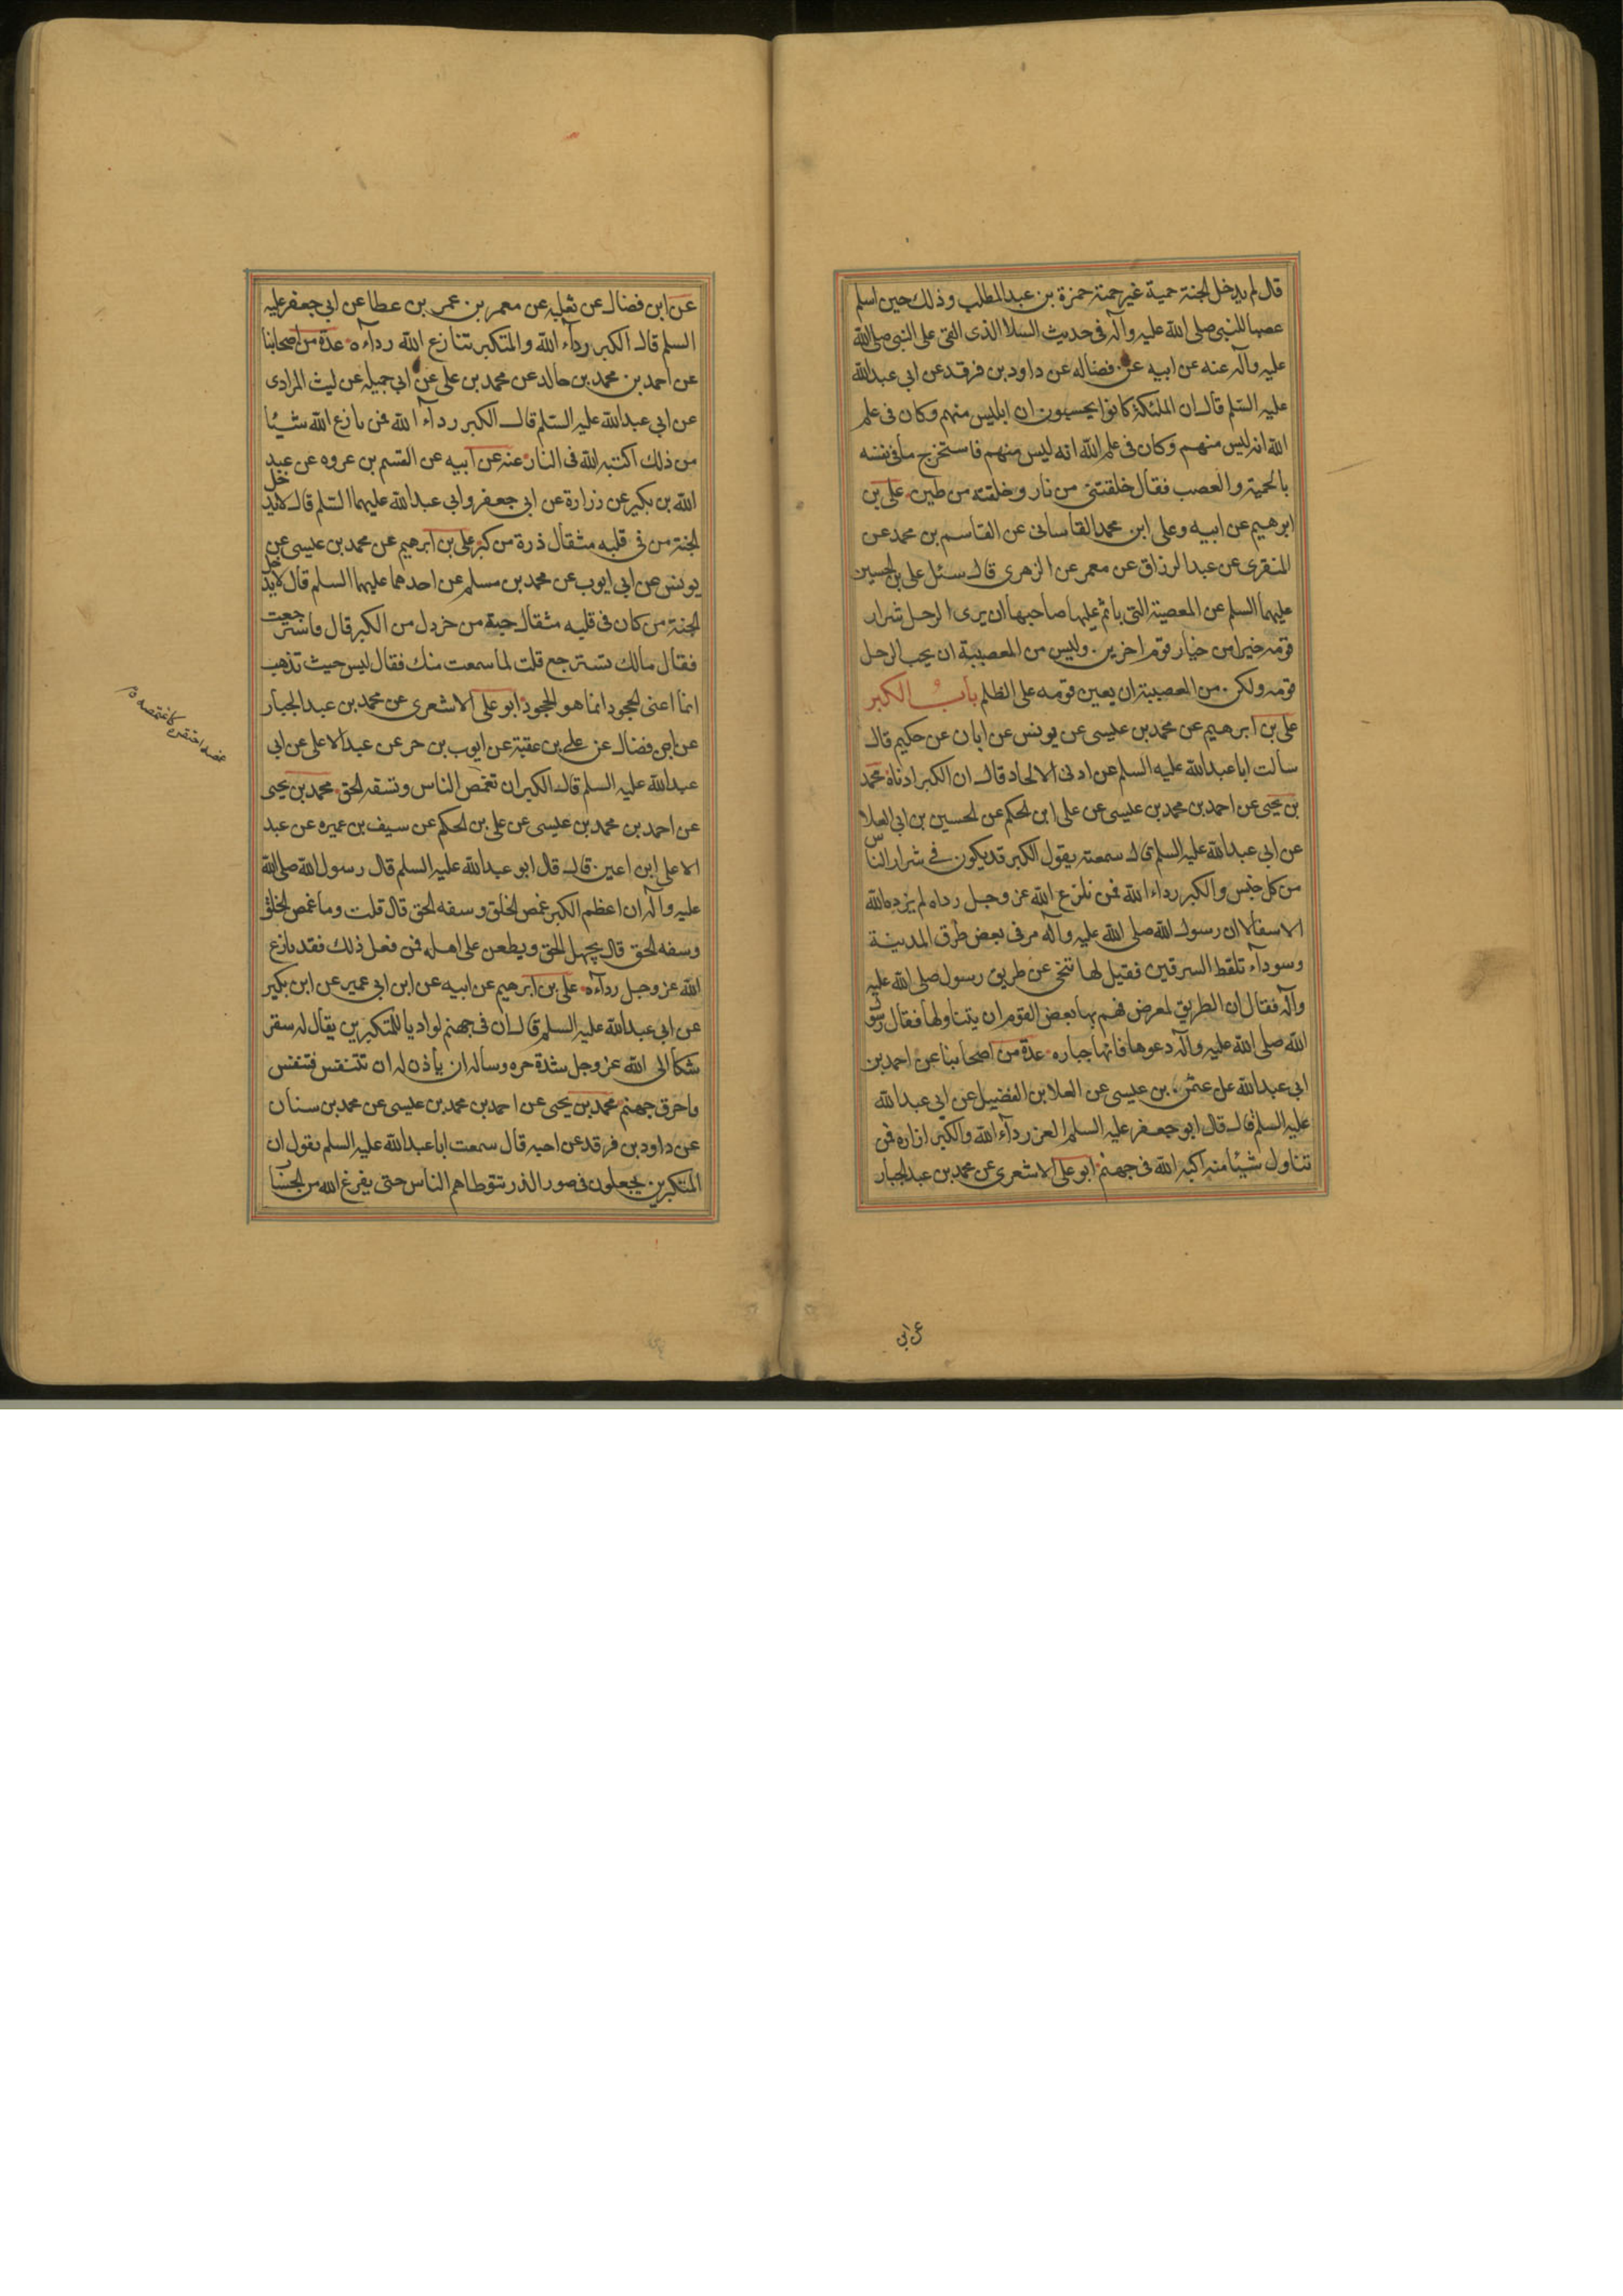 قال لم يدخل الجنة حمية غير حمية حمزة بن عبد المطلب وذلك حين اسلم
غضبا للنبي صلى الله عليه وآله في حديث السلا الذى القى على النبي صلى الله
عليه وآله عنه عن ابيه عن فضاله عن داود بن فرقد عن ابي عبد الله
عليه السلم قال ان الملئكة كانوا يحسبون ان ابليس منهم وكان في علم
الله انه ليس منهم وكان في علم الله انه ليس منهم فاستخرج ما في نفسه
بالحمية والغصب فقال خلقتنى من نار وخلقته من طين على بن
ابرهيم عن ابيه وعلى ابن محمد القاسانى عن القاسم بن محمد عن
المنقرى عن عبد الرزاق عن معمر عن الزهرى قال سئل على بن الحسين
عليهما السلم عن المعصية التى ياثم عليها صاحبها ان يرى الرجل شرار
قومه خيرا من خيار قوم اخرين وليس من العصبية ان يحب الرجل
قومه ولكن من العصبية ان يعين قومه على الظلم باب الكبر
على بن ابرهيم عن محمد بن عيسى عن يونس عن ابان عن حكيم قال
سالت ابا عبد الله عليه السلم عن ادنى الالحاد قال ان الكبر ادناه محمد
بن يحيى عن احمد بن محمد بن عيسى عن على ابن الحكم عن الحسين بن ابى العلا
عن ابى عبد الله عليه السلم قال سمعته يقول الكبر قد يكون في شرار الناس
من كل جنس والكبر رداء الله فمن نازع الله عز وجل رداه لم يزده الله
الا سفالا ان رسول الله صلى الله عليه وآله مر في بعض طرق المدينة
وسودآء تلقط السرقين فقيل لها تنحى عن طريق رسول صلى الله عليه
وآله فقال ان الطريق لمعرض فهم بها بعض القوم ان يتناولها فقال رسول
الله صلى الله عليه وآله دعوها فانها جباره عدة من اصحابنا عن احمد بن
ابى عبد الله عن عثمن بن عيسى عن العلا بن الفضيل عن ابى عبد الله
عليه السلم قال قال ابو جعفر عليه السلم العز ردآء الله والكبر ازاره فمن
تناول شيئا منه اكبه الله في جهنم ابو على الاشعرى عن محمد بن عبد الجبار
عن ابى
عن ابن فضال عن ثعلبه عن معمر بن عمر بن عطا عن ابى جعفر عليه
السلم قال الكبر ردآء الله والمتكبر يتنازع الله ردآءه عدة من اصحابنا
عن احمد بن محمد بن خالد عن محمد بن على عن ابي جميله عن ليث المرادى
عن ابى عبد الله عليه السلم قال الكبر ردآء الله فمن نازع الله شيئا
من ذلك اكتبه الله في النار عنه عن ابيه عن القسم بن عروه عن عبد
الله بن بكير عن زرارة عن ابى جعفر وابى عبد الله عليهما السلم قال لا يدخل
الجنة من في قلبه مثقال ذرة من كبر على بن ابرهيم عن محمد بن عيسى عن
يونس عن ابى ايوب عن محمد بن مسلم عن احدهما عليهما السلم قال لا يدخل
الجنة من كان في قلبه مثقال حبة من خردل من الكبر قال فاسترجعت
فقال مالك تسترجع قلت لما سمعت منك فقال ليس حيث تذهب
انما اعنى الجحود انما هو الجحود ابو على الاشعرى عن محمد بن عبد الجبار
عن ابن فضال عن على بن عقبة عن ايوب بن حر عن عبد الاعلى عن ابى
عبد الله عليه السلم قال الكبر ان تغمص الناس وتسفه الحق محمد بن يحيى
عن احمد بن محمد بن عيسى عن على بن الحكم عن سيف بن عميره عن عبد
الاعلى ابن اعين قال قال ابو عبد الله عليه السلم قال رسول الله صلى الله
عليه وآله ان اعظم الكبر غمص الخلق وسفه الحق قال قلت وما غمص الخلق
وسفه الحق قال يجهل الحق ويطعن على اهله فمن فعل ذلك فقد نازع
الله عز وجل ردآءه على بن ابرهيم عن ابيه عن ابن ابى عمير عن ابن بكير
عن ابى عبد الله عليه السلم قال ان في جهنم لواديا للمتكبرين يقال له سقر
شكا الى الله عز وجل شدة حره وساله ان ياذن له ان تتنفس فتنفس
فاحرق جهنم محمد بن يحيى عن احمد بن محمد بن عيسى عن محمد بن سنان
عن داود بن فرقد عن اخيه قال سمعت ابا عبد الله عليه السلم يقول ان
المتكبرين يجعلون في صور الذر تتوطاهم الناس حتى يفرغ الله من الحساب
غمصه احتقره كاغتمصه ق